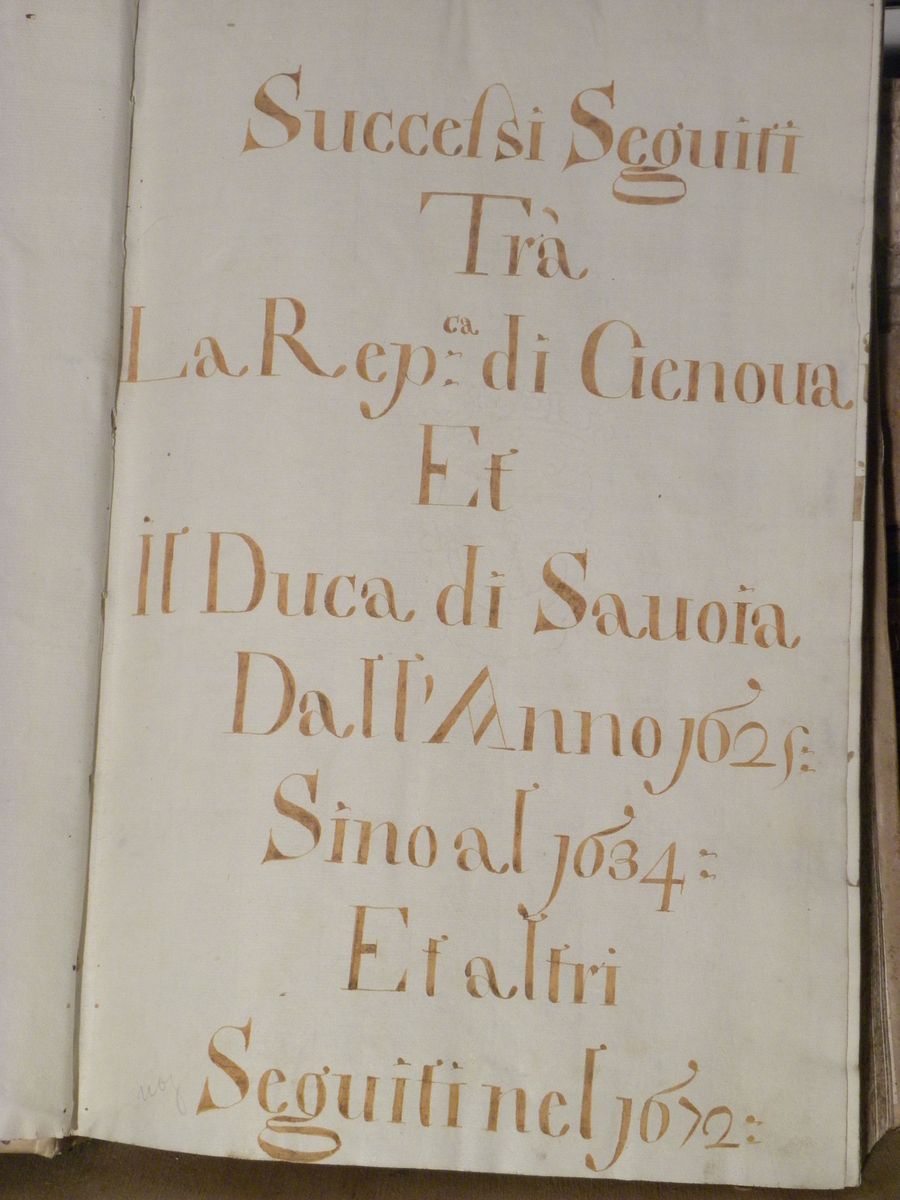 Successi Seguiti
Trà
La Rep:ca di Genoua
Et
il Duca di Sauoia
Dall'Anno 1625:
Sino al 1634:
Et altri
Seguiti nel 1672: